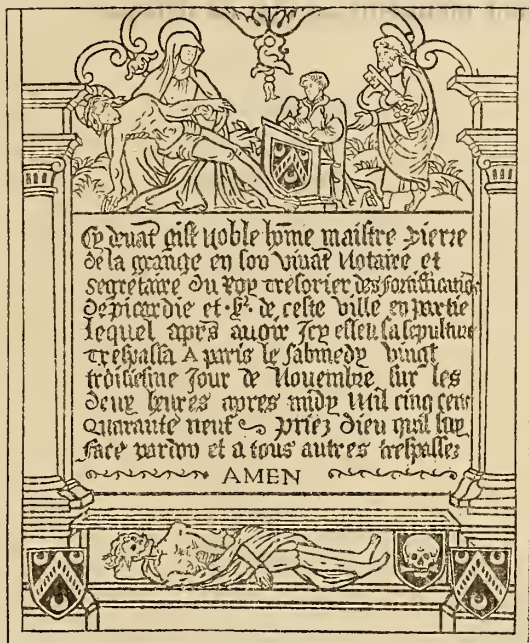 Cy devāt gist noble hōme maistre pierre
de la grange en son vivāt Notaire et
segretaire du Roy tresorier des fortifficatiōs
de picardie et Sr. de ceste ville en partie
lequel aprs avoir Jcy esleu sa sepulture
trespassa A paris le sabmedy vingt
troisiesme Jour de Novembre sur les
deux heures apres midy Mil cinq cens
Quarante neuf priez dieu quil luy
face pardon et a tous autres trespassez
AMEN